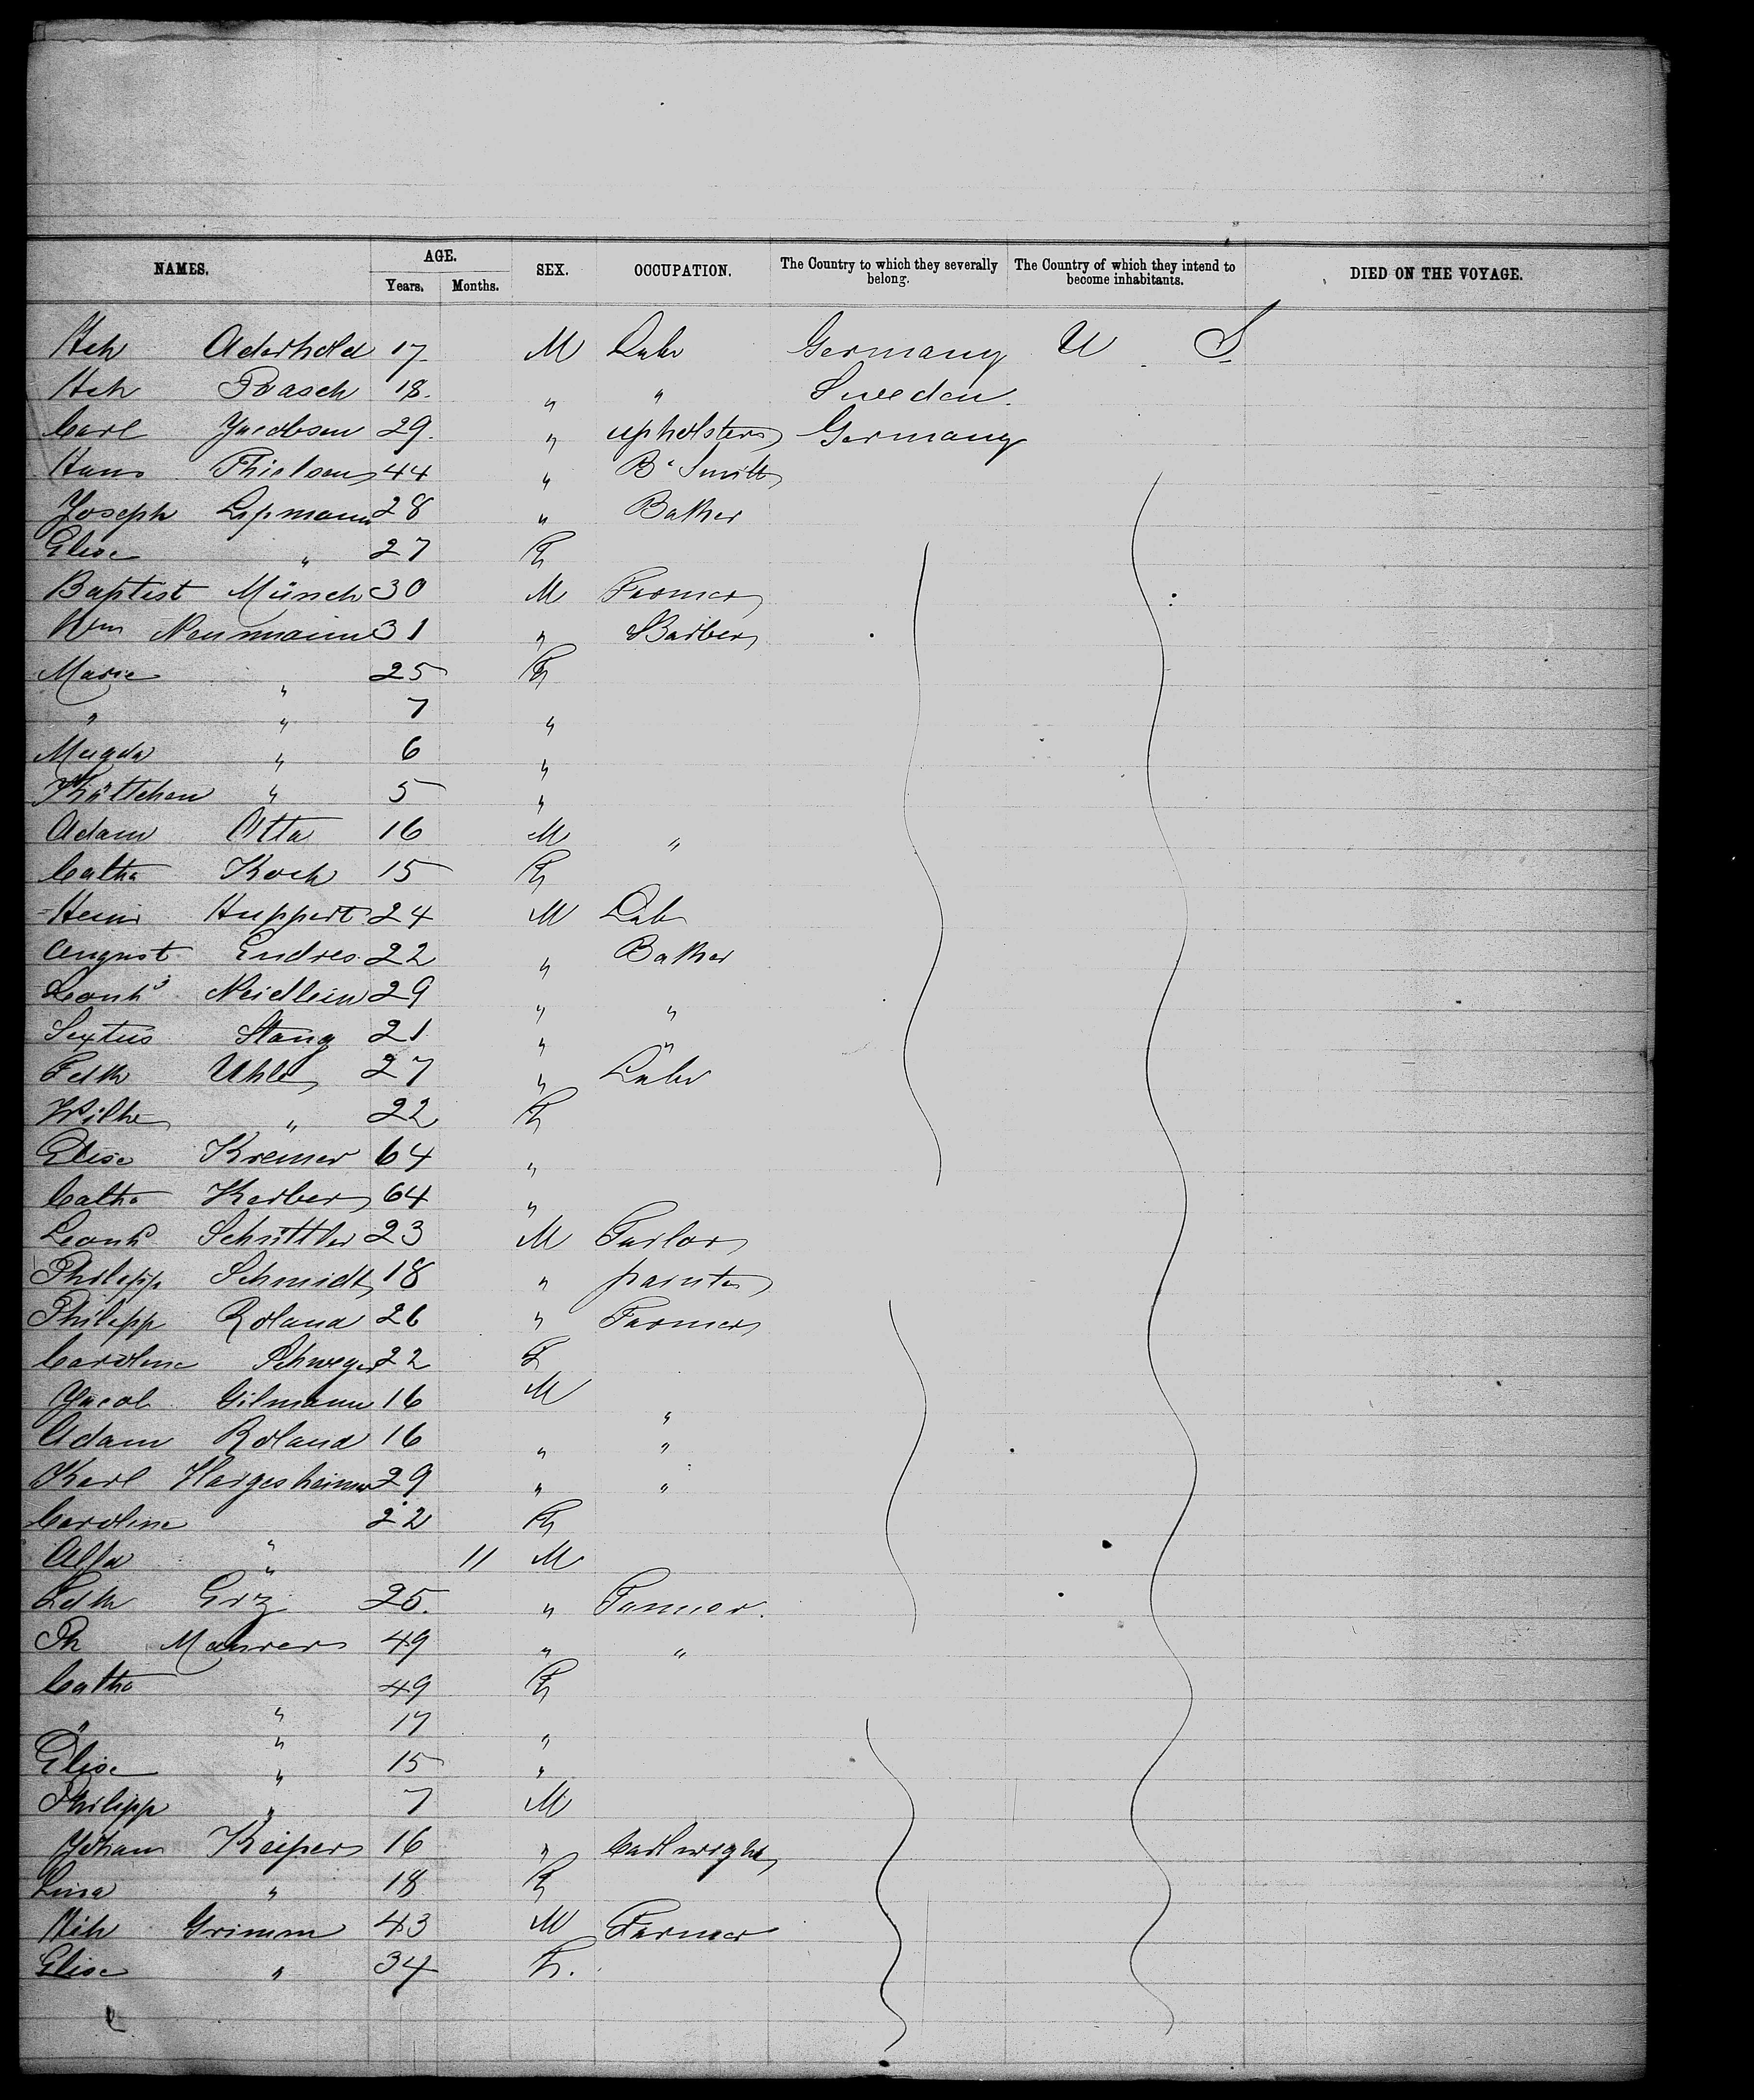 NAMES. AGE. Years. Months. SEX. OCCUPATION. The Country to which they severally belong. The Country of which they intend to become inhabitants. DIED ON THE VOYAGE.
Hch Aderhold 17 M Labr Germany U S
Hch Paasch 18. " " Sweden.
Carl Jacobsen 29. " upholsterer Germany
Hans Thielsen 44 " B. Smith
Joseph Lipmann 28 " Baker
Elise " 27 F
Baptist Münch 30 M Farmer
Wm Neumann 31 " Barber
Marie " 25 F
" " 7 "
Magda " 6 "
Kättchen " 5 "
Adam Otta 16 M "
Catha Koch 15 F
Heinr Huppert 24 M Lab
August Endres 22 " Baker
Leonhd Neidlein 29 " "
Sextus Stang 21 " "
Fdk Uhle 27 " Labr
Wilhe " 22 F
Elise Kremer 64 "
Catha Kerber 64 "
Leonhd Schüttler 23 M Tailor
Philipp Schmidt 18 " painter
Philipp Roland 26 " Farmer
Caroline Schweger 22 F
Jacob Gilmann 16 M "
Adam Roland 16 " "
Karl Hargesheimer 29 " "
Caroline " 22 F
" 11 M
25. " Farmer.
Ph Maurer 49 " "
Catha " 49 F
" " 17 "
Elise " 15 "
Philipp " 7 M
Johann Keiper 16 " Cartwright
Lina " 18 F
Hch Grimm 43 M Farmer
Elise " 34 F.